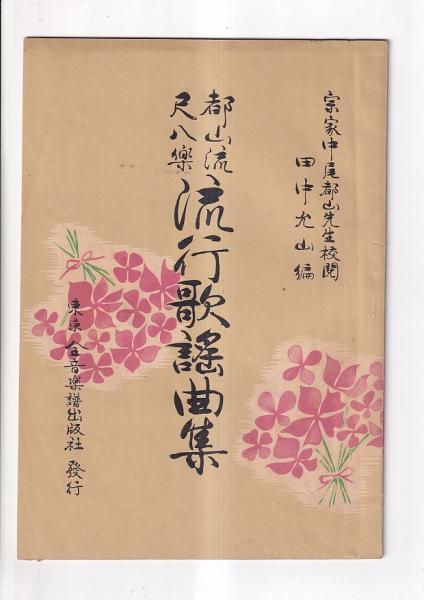 宗家中尾都山先生校閲
田中允山編
都山流
尺八樂
流行歌謡曲集
東京 全音樂譜出版社 發行